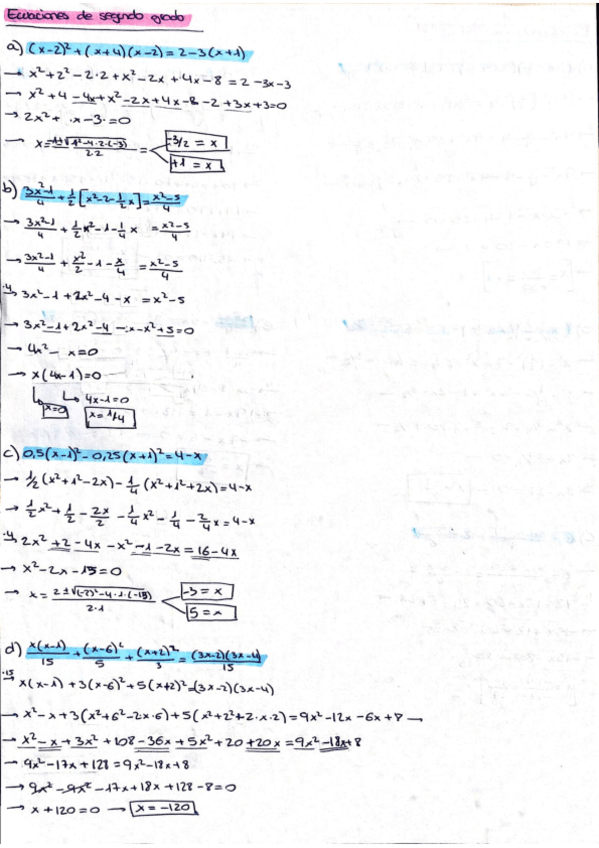 Ecuaciones de segundo grado
a) (x-2)² + (x+4)(x-2) = 2-3(x+1)
→ x²+2²-2·2+x²-2x+4x-8 = 2-3x-3
→ x²+4-4x+x²-2x+4x-8-2+3x+3=0
→ 2x²+ x-3=0
→ x = -1±√1²-4·2·(-3) / 2·2 = -3/2 = x
+1 = x
b) 3x²-1/4 + 1/2 [x²-2-1/2 x] = x²-5/4
→ 3x²-1/4 + 1/2 x²-1-1/4 x = x²-5/4
→ 3x²-1/4 + x²/2 -1- x/4 = x²-5/4
·4→ 3x²-1+2x²-4-x = x²-5
→ 3x²-1+2x²-4-x-x²+5=0
→ 4x²-x=0
→ x(4x-1)=0
↳ ↳ 4x-1=0
x=0 x=1/4
c) 0,5(x-1)²-0,25(x+1)²=4-x
→ 1/2 (x²+1²-2x) - 1/4 (x²+1²+2x)=4-x
→ 1/2 x² + 1/2 - 2x/2 - 1/4 x² - 1/4 - 2/4 x = 4-x
·4→ 2x²+2-4x-x²-1-2x=16-4x
→ x²-2x-15=0
→ x = 2±√(-2)²-4·1·(-15) / 2·1 -3 = x
5 = x
d) x(x-1)/15 + (x-6)²/5 + (x+2)²/3 = (3x-2)(3x-4)/15
·15→ x(x-1)+3(x-6)²+5(x+2)²=(3x-2)(3x-4)
→ x²-x+3(x²+6²-2x·6)+5(x²+2²+2·x·2)=9x²-12x-6x+8 →
→ x²-x+3x²+108-36x+5x²+20+20x=9x²-18x+8
→ 9x²-17x+128=9x²-18x+8
→ 9x²-9x²-17x+18x+128-8=0
→ x+120=0 → x=-120